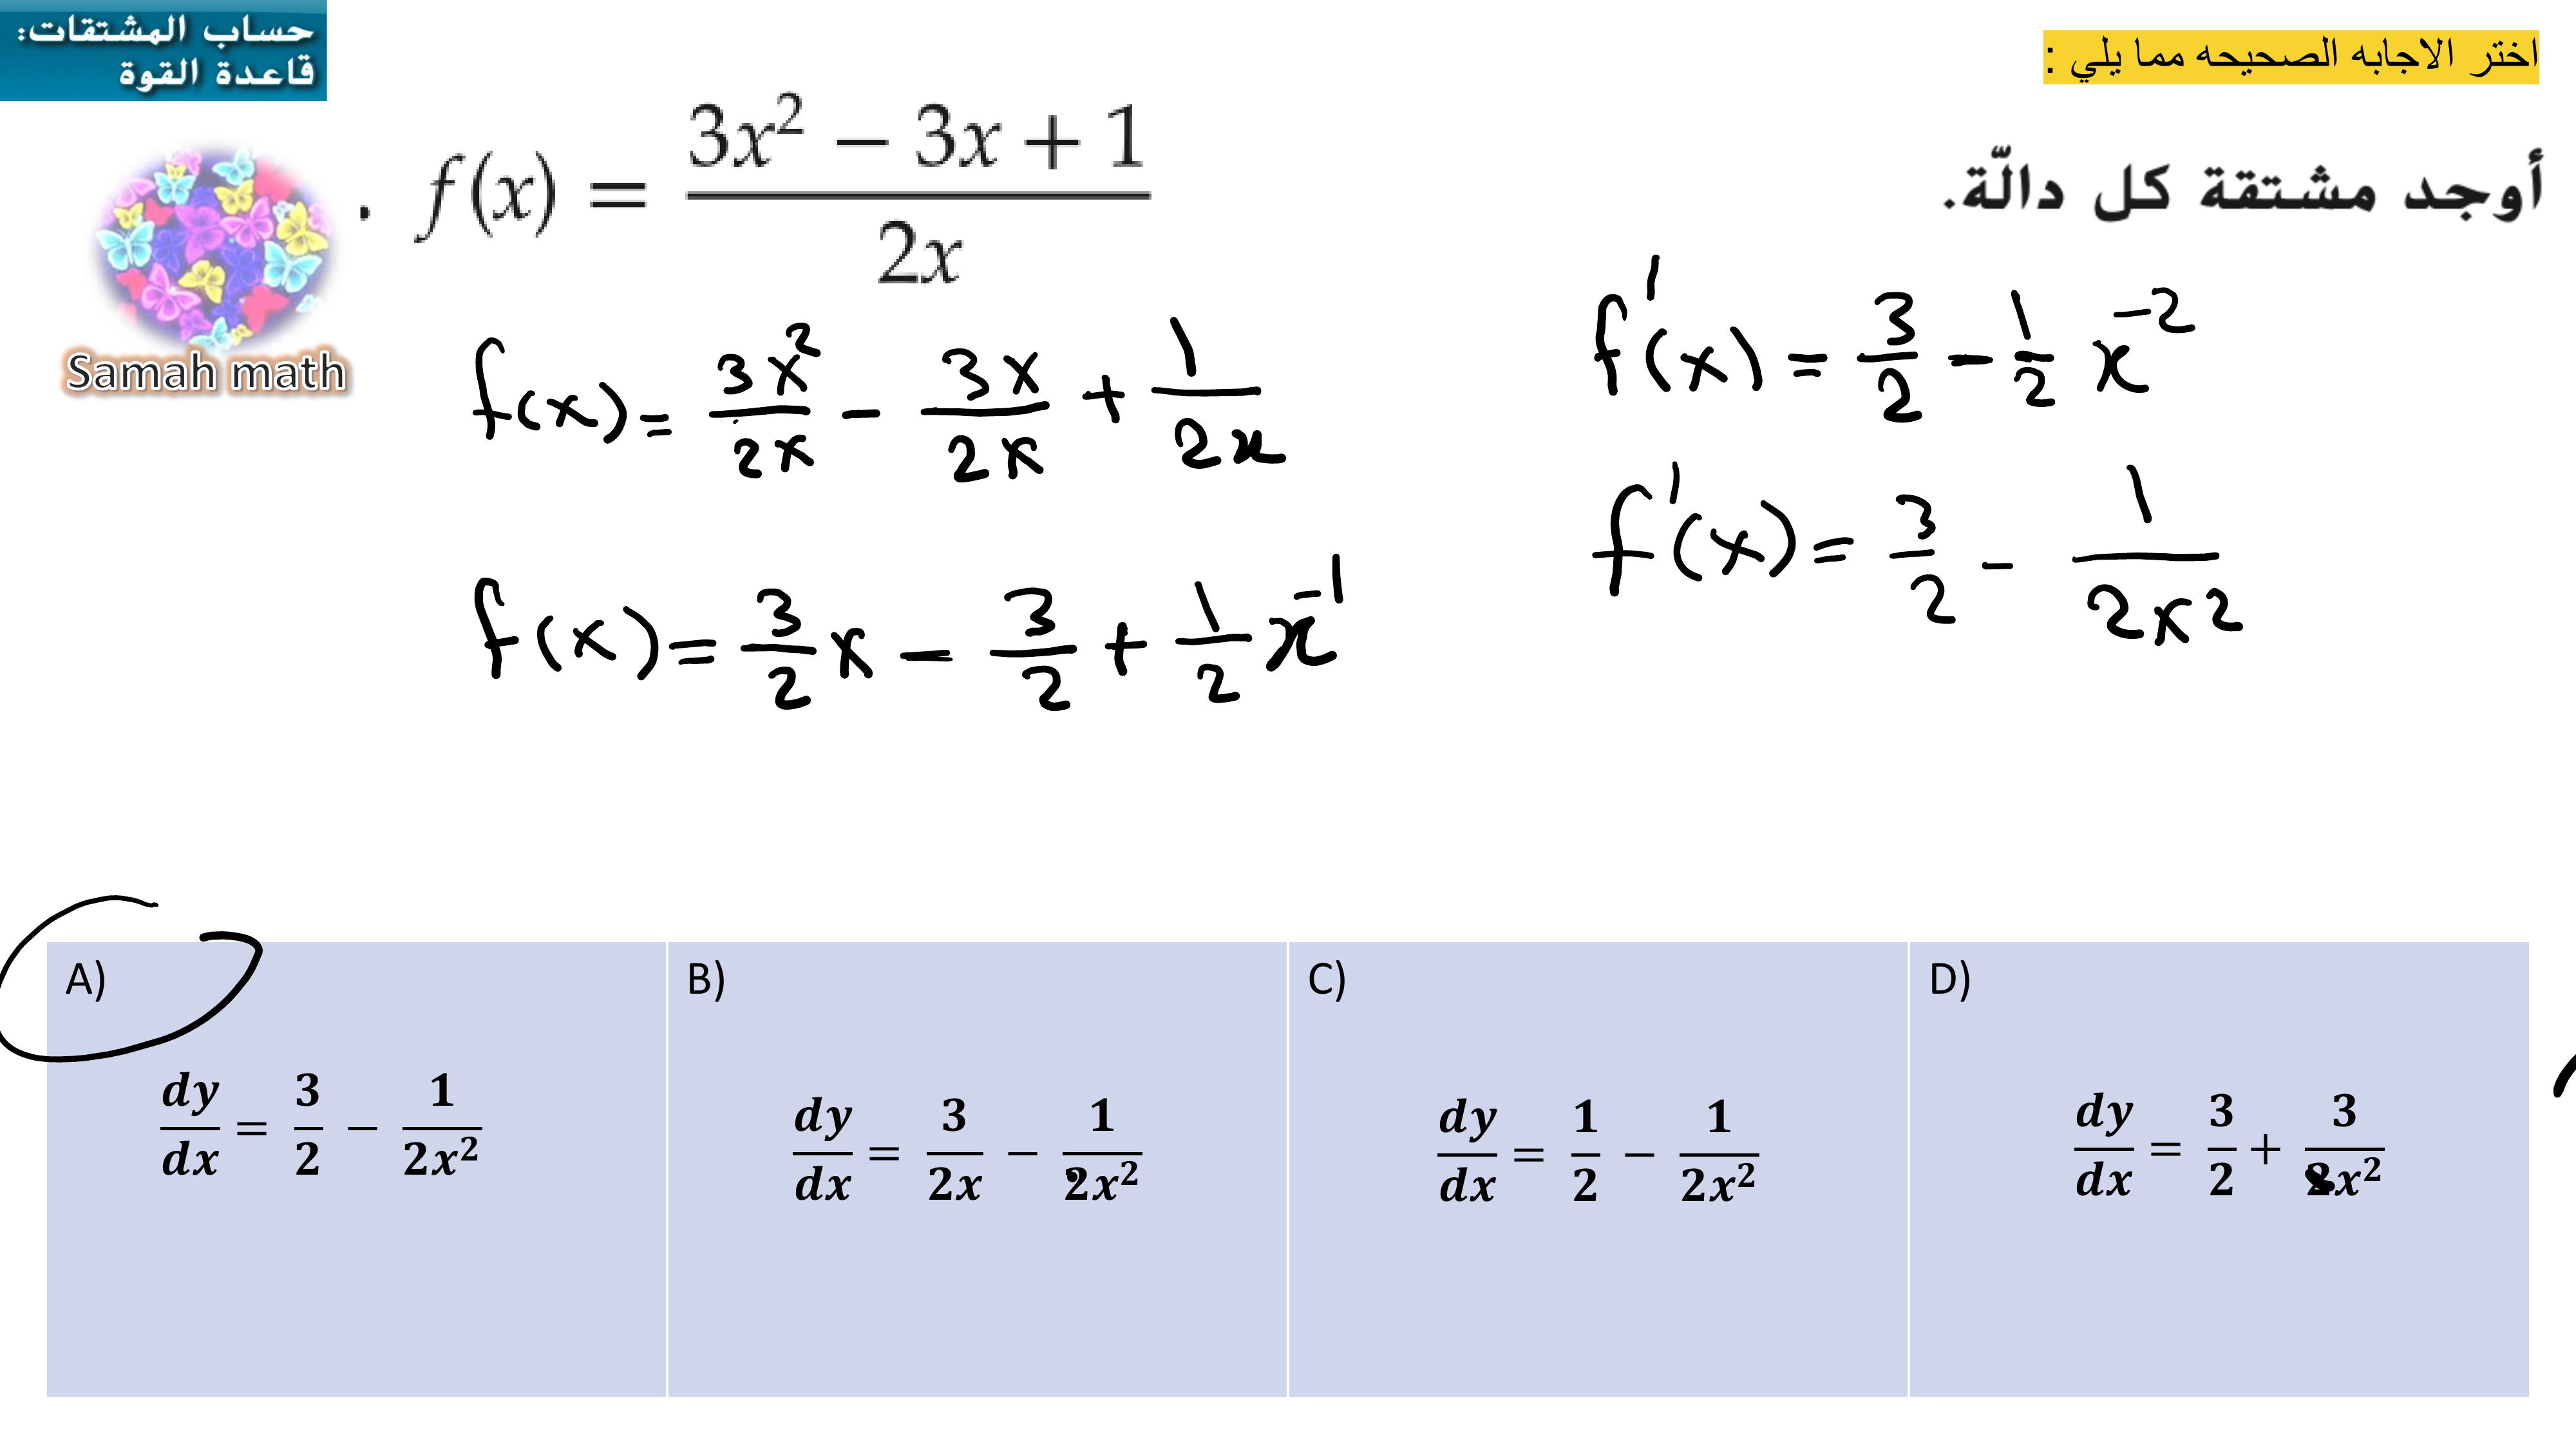 حساب المشتقات:
قاعدة القوة
اختر الاجابه الصحيحه مما يلي :
أوجد مشتقة كل دالّة.
. f(x) = (3x² − 3x + 1) / 2x
Samah math
f(x) = 3x²/2x − 3x/2x + 1/2x
f(x) = 3/2 x − 3/2 + 1/2 x⁻¹
f'(x) = 3/2 − 1/2 x⁻²
f'(x) = 3/2 − 1/2x²
A)
dy/dx = 3/2 − 1/2x²
B)
dy/dx = 3/2x − 1/2x²
C)
dy/dx = 1/2 − 1/2x²
D)
dy/dx = 3/2 + 3/2x²